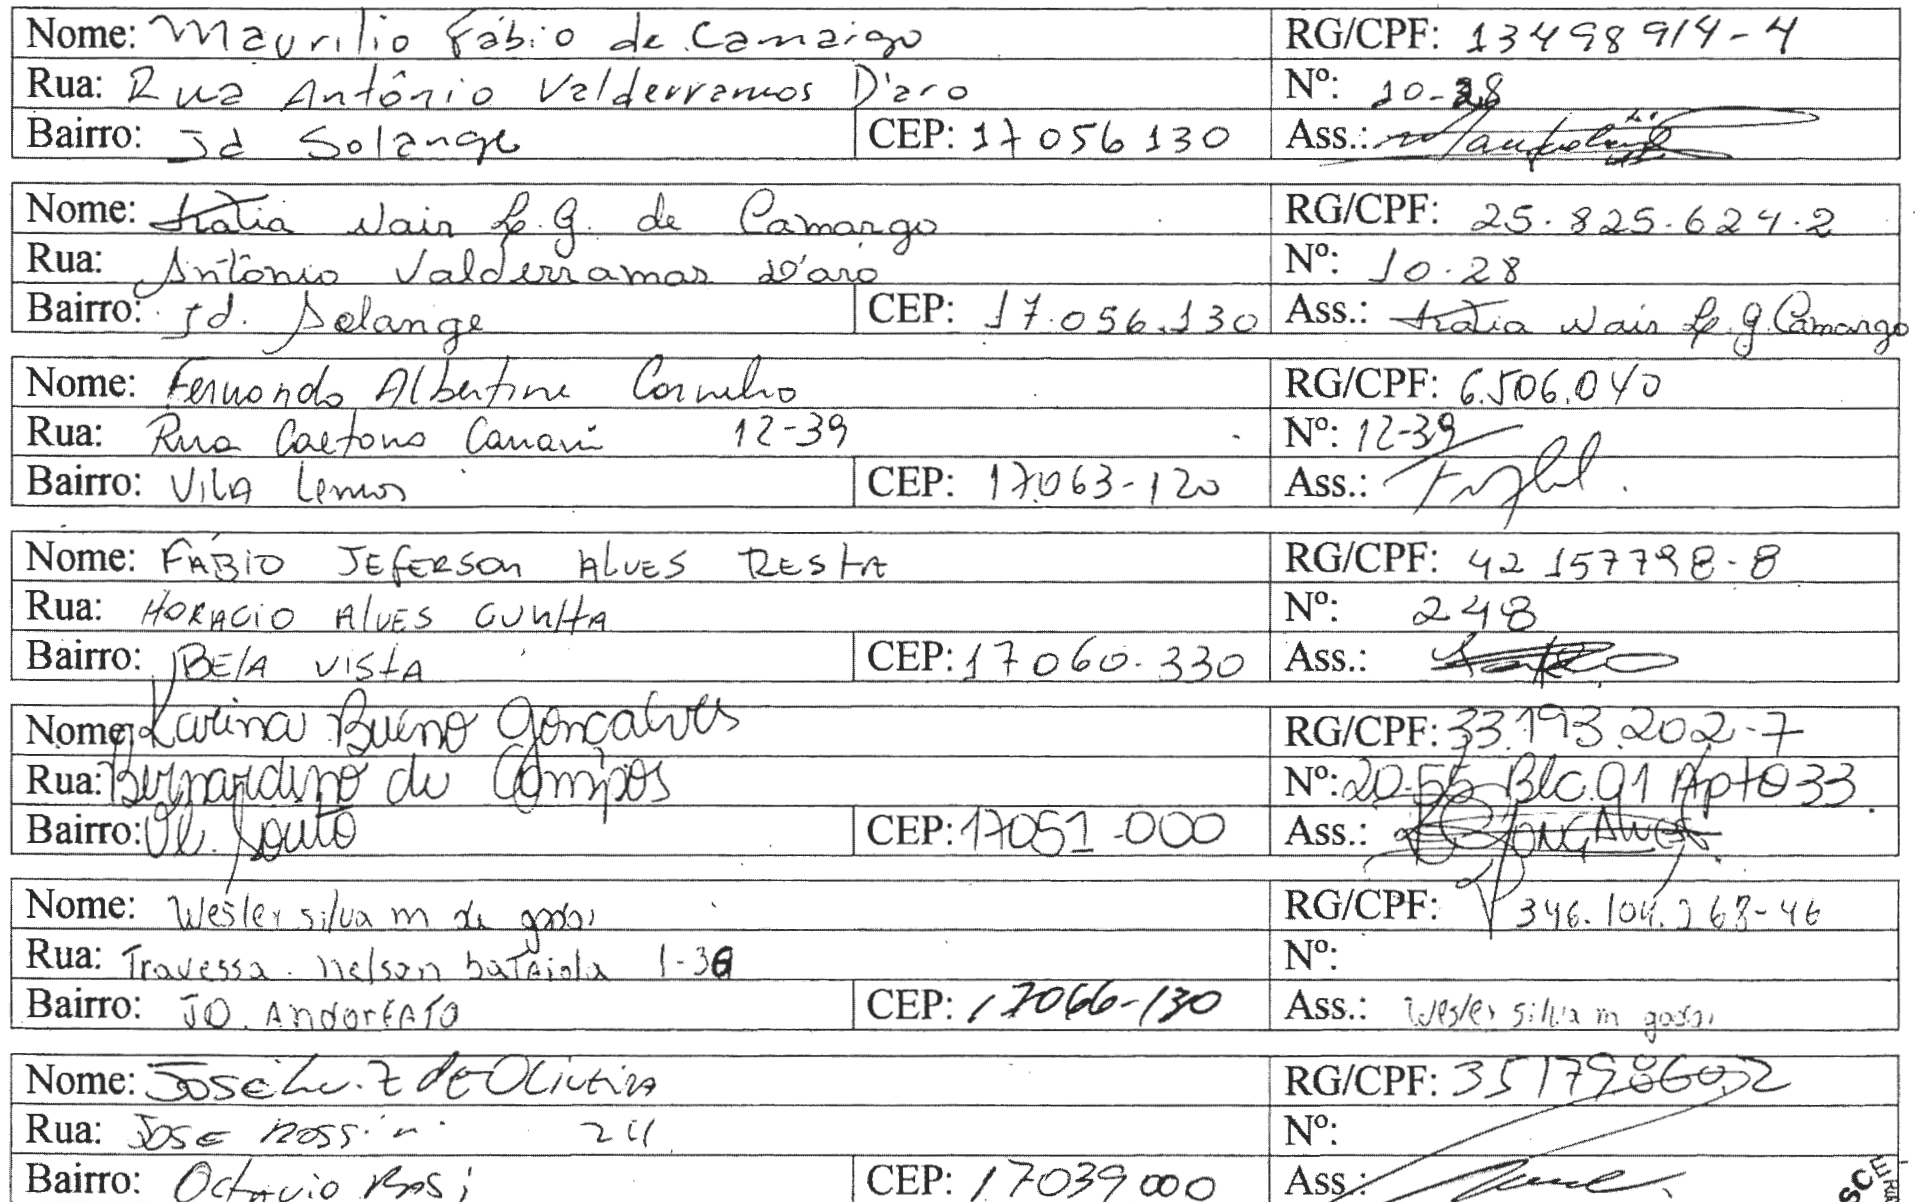 Nome: Maurilio Fábio de Camargo RG/CPF: 13498914-4
Rua: Rua Antônio Valderramos D'aro Nº: 10-28
Bairro: Jd Solange CEP: 17056130 Ass.:
Nome: Katia Nair L. G. de Camargo RG/CPF: 25.825.624.2
Rua: Antonio Valderramas D'aro Nº: 10.28
Bairro: Jd. Solange CEP: 17.056.130 Ass.: Katia Nair L. G. Camargo
Nome: Fernando Albertine Cornelho RG/CPF: 6.506.040
Rua: Rua Caetano 12-39 Nº: 12-39
Bairro: Vila Lemos CEP: 17063-120 Ass.:
Nome: FABIO JEFERSON ALVES RESTA RG/CPF: 42157798-8
Rua: HORACIO ALVES CUNHA Nº: 248
Bairro: BELA VISTA CEP: 17060-330 Ass.:
Nome: Karina Bueno Gonçalves RG/CPF: 33.193.202-7
Rua: Bernardino de Campos Nº: 20-55 Blc.01 Apto 33
Bairro: Vl. Souto CEP: 17051-000 Ass.: Gonçalves
Nome: Wesley silva m de godoi RG/CPF: 346.104.268-46
Rua: Travessa. nelson bataiola 1-36 Nº:
Bairro: JD. Andorfato CEP: 17066-130 Ass.: Wesley silva m godoi
Nome: José Luiz de Oliveira RG/CPF:
Rua: Jose Rossini 24 Nº:
Bairro: Octavio Rasi CEP: 17039000 Ass.: